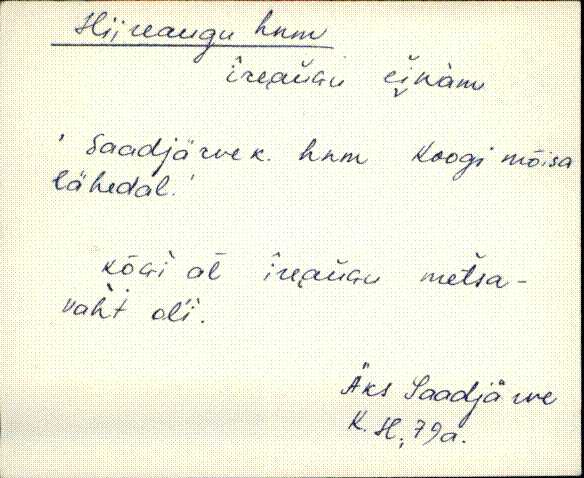 Hiireaugu hnm
îreau̬Gu ei̭nàmu
'Saadjärve k. hnm Koogi mõisa
lähedal.'
kõGì al îreau̬Gu metsa-
vahť oĺi.
Äks Saadjärve
K. H., 79a.